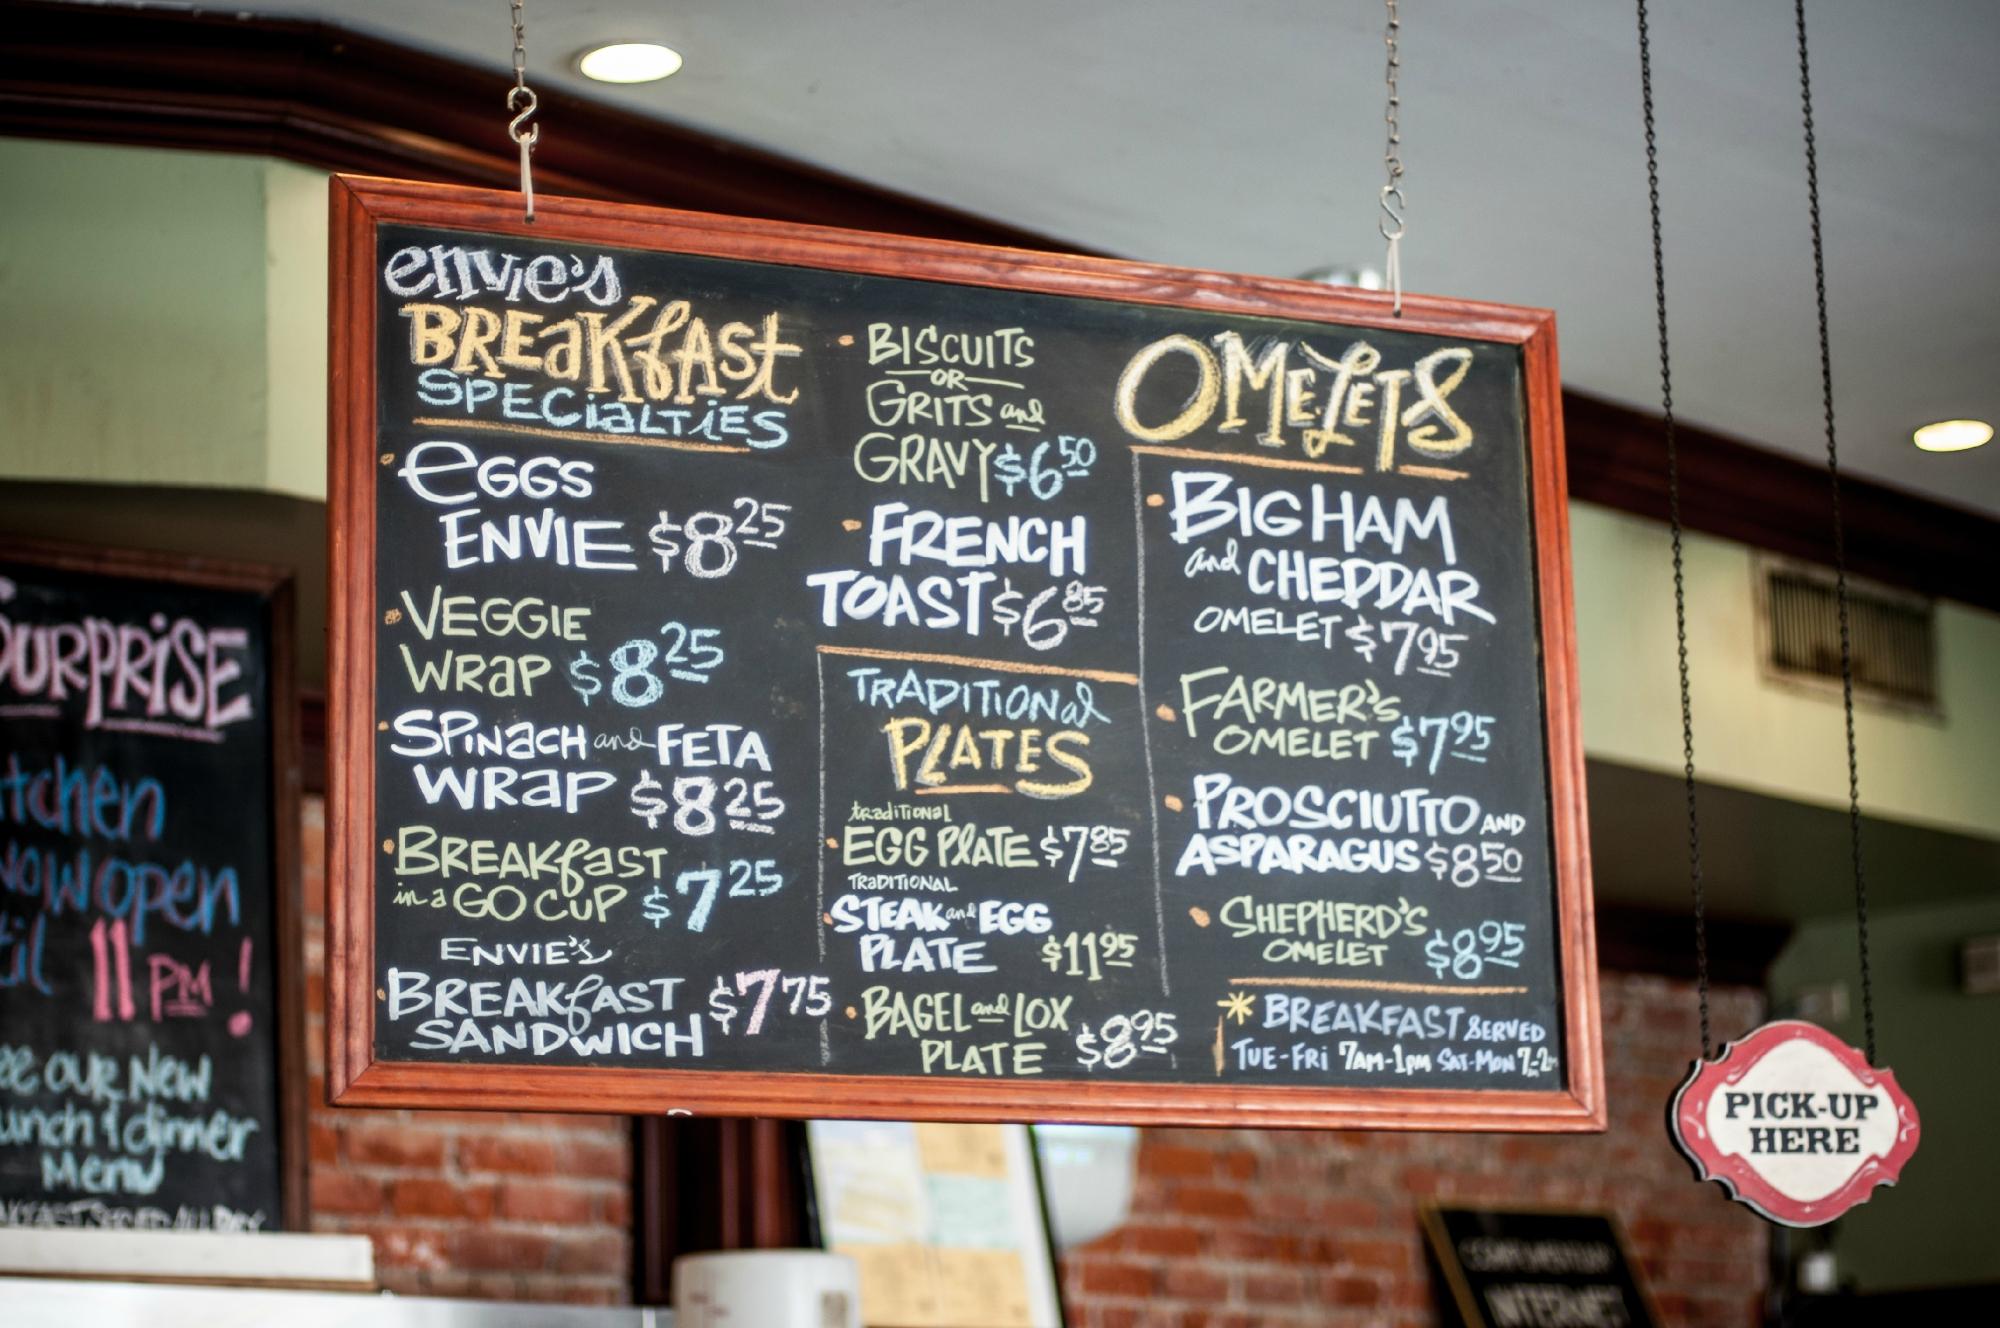 envie's
BREAKfAST
SPECiaLTiES
eGGS
ENVIE $8 25
VEGGIE
WRaP $8 25
SPiNaCH and FETA
WRaP $8 25
BREAKfaST
in a GO CUP $7 25
ENVIE's
BREAKfAST
SANDWICH $7 75
BISCUITS
OR
GRITS and
GRAVY $6 50
FRENCH
TOAST $6 85
TRADITIONal
PLATES
traditional
EGG PlATE $7 85
TRaDITIONAL
STEAK and EGG
PLATE $11 95
BAGEL and LOX
PLATE $8 95
OMELETS
BIG HAM
and CHEDDAR
OMELET $7 95
FARMER's
OMELET $7 95
PROSCIUTTO AND
ASPARAGUS $8 50
SHEPHERD'S
OMELET $8 95
* BREAKFAST SERVED
TUE-FRi 7AM-1pm SAT-MON 7-2
SURPRISE
itchen
now open
til 11 PM!
see OUR NeW
Lunch & dinner
MenU
PICK-UP
HERE
INTERNET